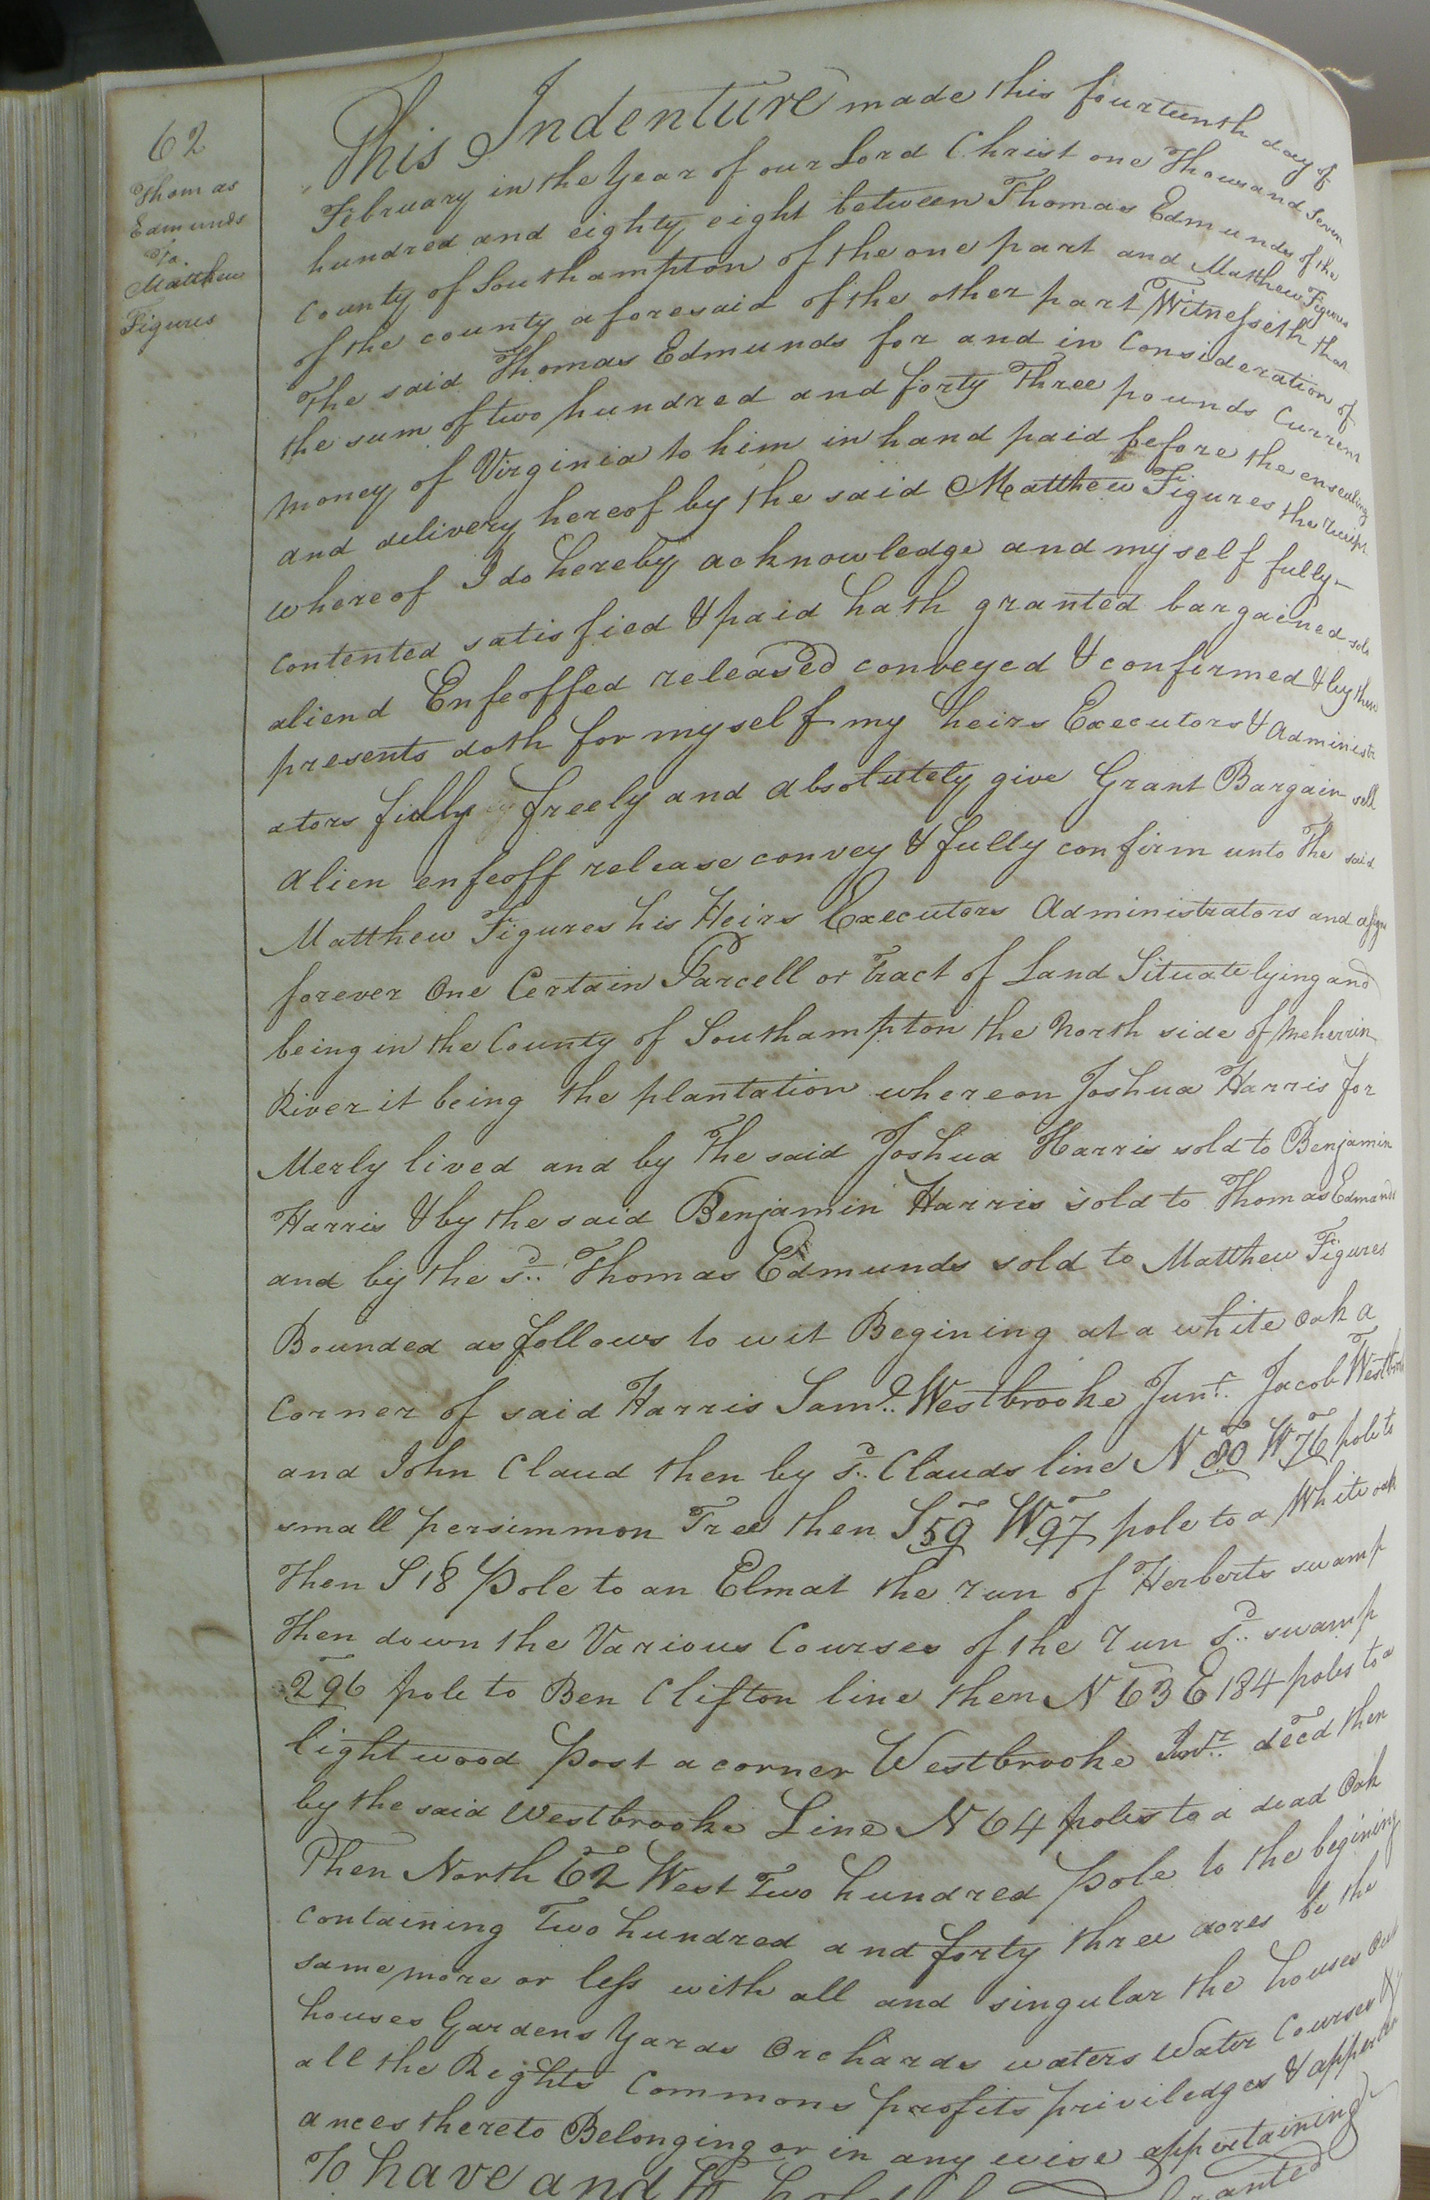 62
Thomas
Edmunds
To.
Matthew
Figures
This Indenture made this fourteenth day of
February in the Year of our Lord Christ one Thousand Seven
hundred and eighty eight between Thomas Edmunds of the
County of Southampton of the one part and Matthew Figures
of the county aforesaid of the other part Witnesseth that
The said Thomas Edmunds for and in Consideration of
the sum of two hundred and forty Three pounds Current
money of Virginia to him in hand paid before the ensealing
and delivery hereof by the said Matthew Figures the receipt
whereof I do hereby acknowledge and myself fully
contented satisfied & paid hath granted bargained sold
aliend Enfeoffed released conveyed & confirmed & by these
presents doth for myself my heirs Executors & Administr
ators fully freely and absolutely give Grant Bargain sell
Alien enfeoff release convey & fully confirm unto The said
Matthew Figures his Heirs Executors Administrators and assigns
forever One Certain Parcell or Tract of Land Situate lying and
being in the County of Southampton the North side of Meherrin
River it being the plantation whereon Joshua Harris for
Merly lived and by The said Joshua Harris sold to Benjamin
Harris & by the said Benjamin Harris sold to Thomas Edmunds
and by the sd. Thomas Edmunds sold to Matthew Figures
Bounded as follows to wit Begining at a white Oak a
Corner of said Harris Saml. Westbrooke Junr. Jacob Westbrook
and John Claud then by sd. Clauds line N 80 W 76 pole to
small persimmon Tree then S 59 W 97 pole to a White oak
Then S 18 Pole to an Elm at the run of Herberts swamp
Then down the Various Courses of the run sd. swamp
296 pole to Ben Clifton line then N 63 E 184 poles to a
lightwood Post a corner Westbrooke Junr. decd then
by the said Westbrooke Line N 64 poles to a dead Oak
Then North 62 West Two hundred Pole to the begining
containing Two hundred and forty three acres be the
same more or less with all and singular the houses Out
houses Gardens Yards Orchards waters Water Courses &
all the Rights Commons profits priviledges & apperten
ances thereto Belonging or in any wise appertaining
To have and to hold granted